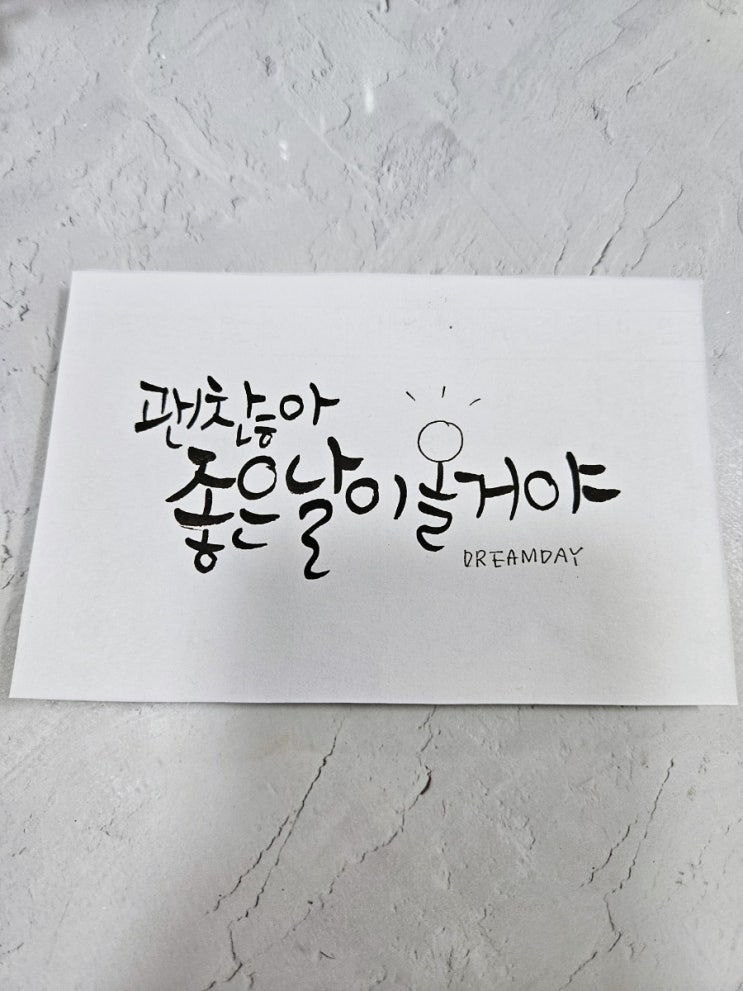 괜찮아
좋은날이올거야
DREAMDAY